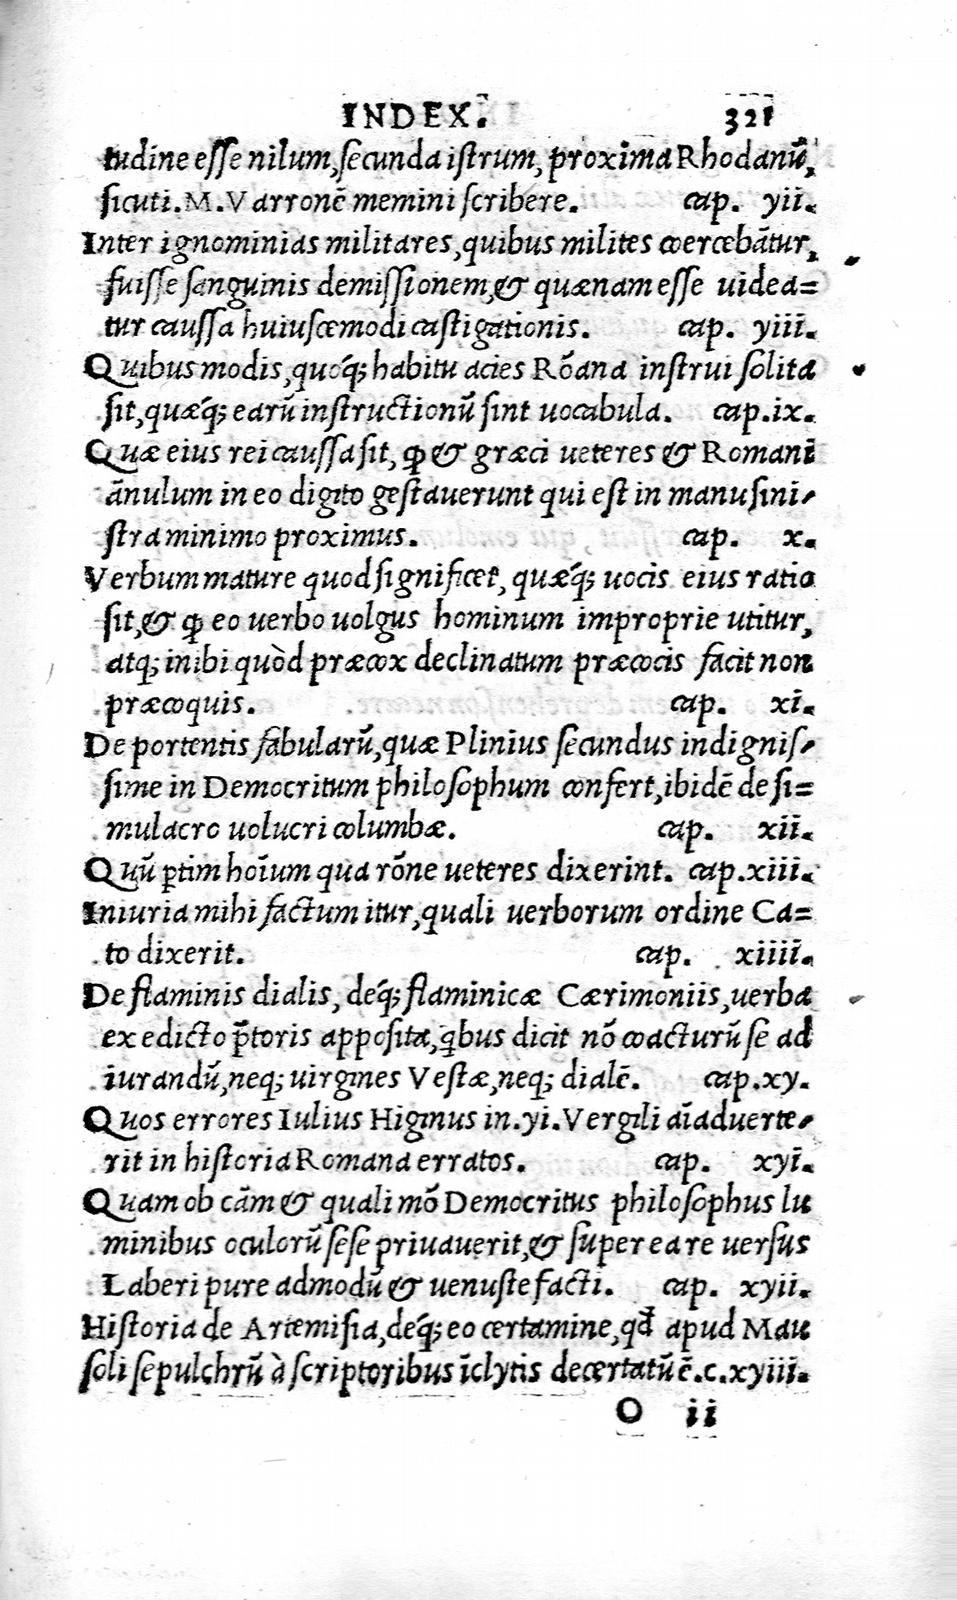 INDEX. 321
tudine esse nilum, secunda istrum, proxima Rhodanū,
sicuti. M. Varronē memini scribere. cap. yii.
Inter ignominias militares, quibus milites coercebātur,
fuisse sanguinis demissionem, & quænam esse uidea=
tur caussa huiuscemodi castigationis. cap. yiii.
Quibus modis, quoq́; habitu acies Rōana instrui solita
sit, quæq́; earū instructionū sint uocabula. cap. ix.
Quæ eius rei caussa sit, ꝙ & græci ueteres & Romani
ānulum in eo digito gestauerunt qui est in manu sini-
stra minimo proximus. cap. x.
Verbum mature quod significet, quæq́; uocis eius ratio
sit, & ꝙ eo uerbo uolgus hominum improprie utitur,
atq; inibi quòd præcox declinatum præcocis facit non
præcoquis. cap. xi.
De portentis fabularū, quæ Plinius secundus indignis-
sime in Democritum philosophum confert, ibidē de si=
mulacro uolucri columbæ. cap. xii.
Quū ꝑtim hoīum qua rōne ueteres dixerint. cap. xiii.
Iniuria mihi factum itur, quali uerborum ordine Ca=
to dixerit. cap. xiiii.
De flaminis dialis, deq́; flaminicæ Cærimoniis, uerba
ex edicto p̄toris apposita, ꝗbus dicit nō coacturū se ad
iurandū, neq; uirgines Vestæ, neq; dialē. cap. xy.
Quos errores Iulius Higinus in. yi. Vergili aīaduerte-
rit in historia Romana erratos. cap. xyi.
Quam ob cām & quali mō Democritus philosophus lu
minibus oculorū sese priuauerit, & super ea re uersus
Laberi pure admodū & uenuste facti. cap. xyii.
Historia de Artemisia, deq́; eo certamine, qd̄ apud Mau
soli sepulchrū à scriptoribus īclytis decertatū ē. c. xyiii.
O ii